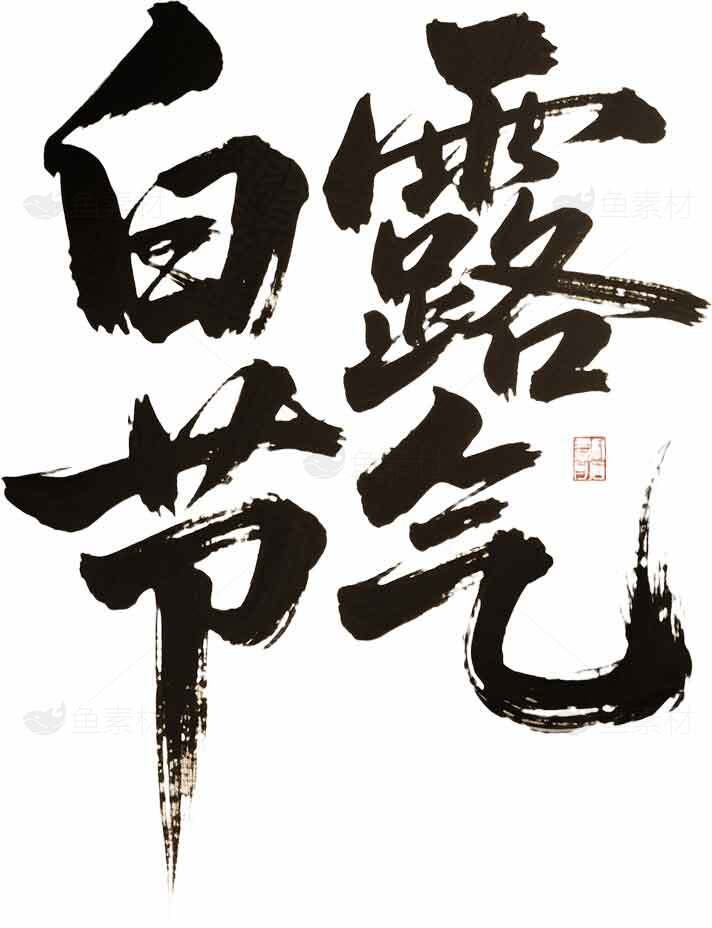 白露
节气
鱼素材
鱼素材
鱼素材
鱼素材
鱼素材